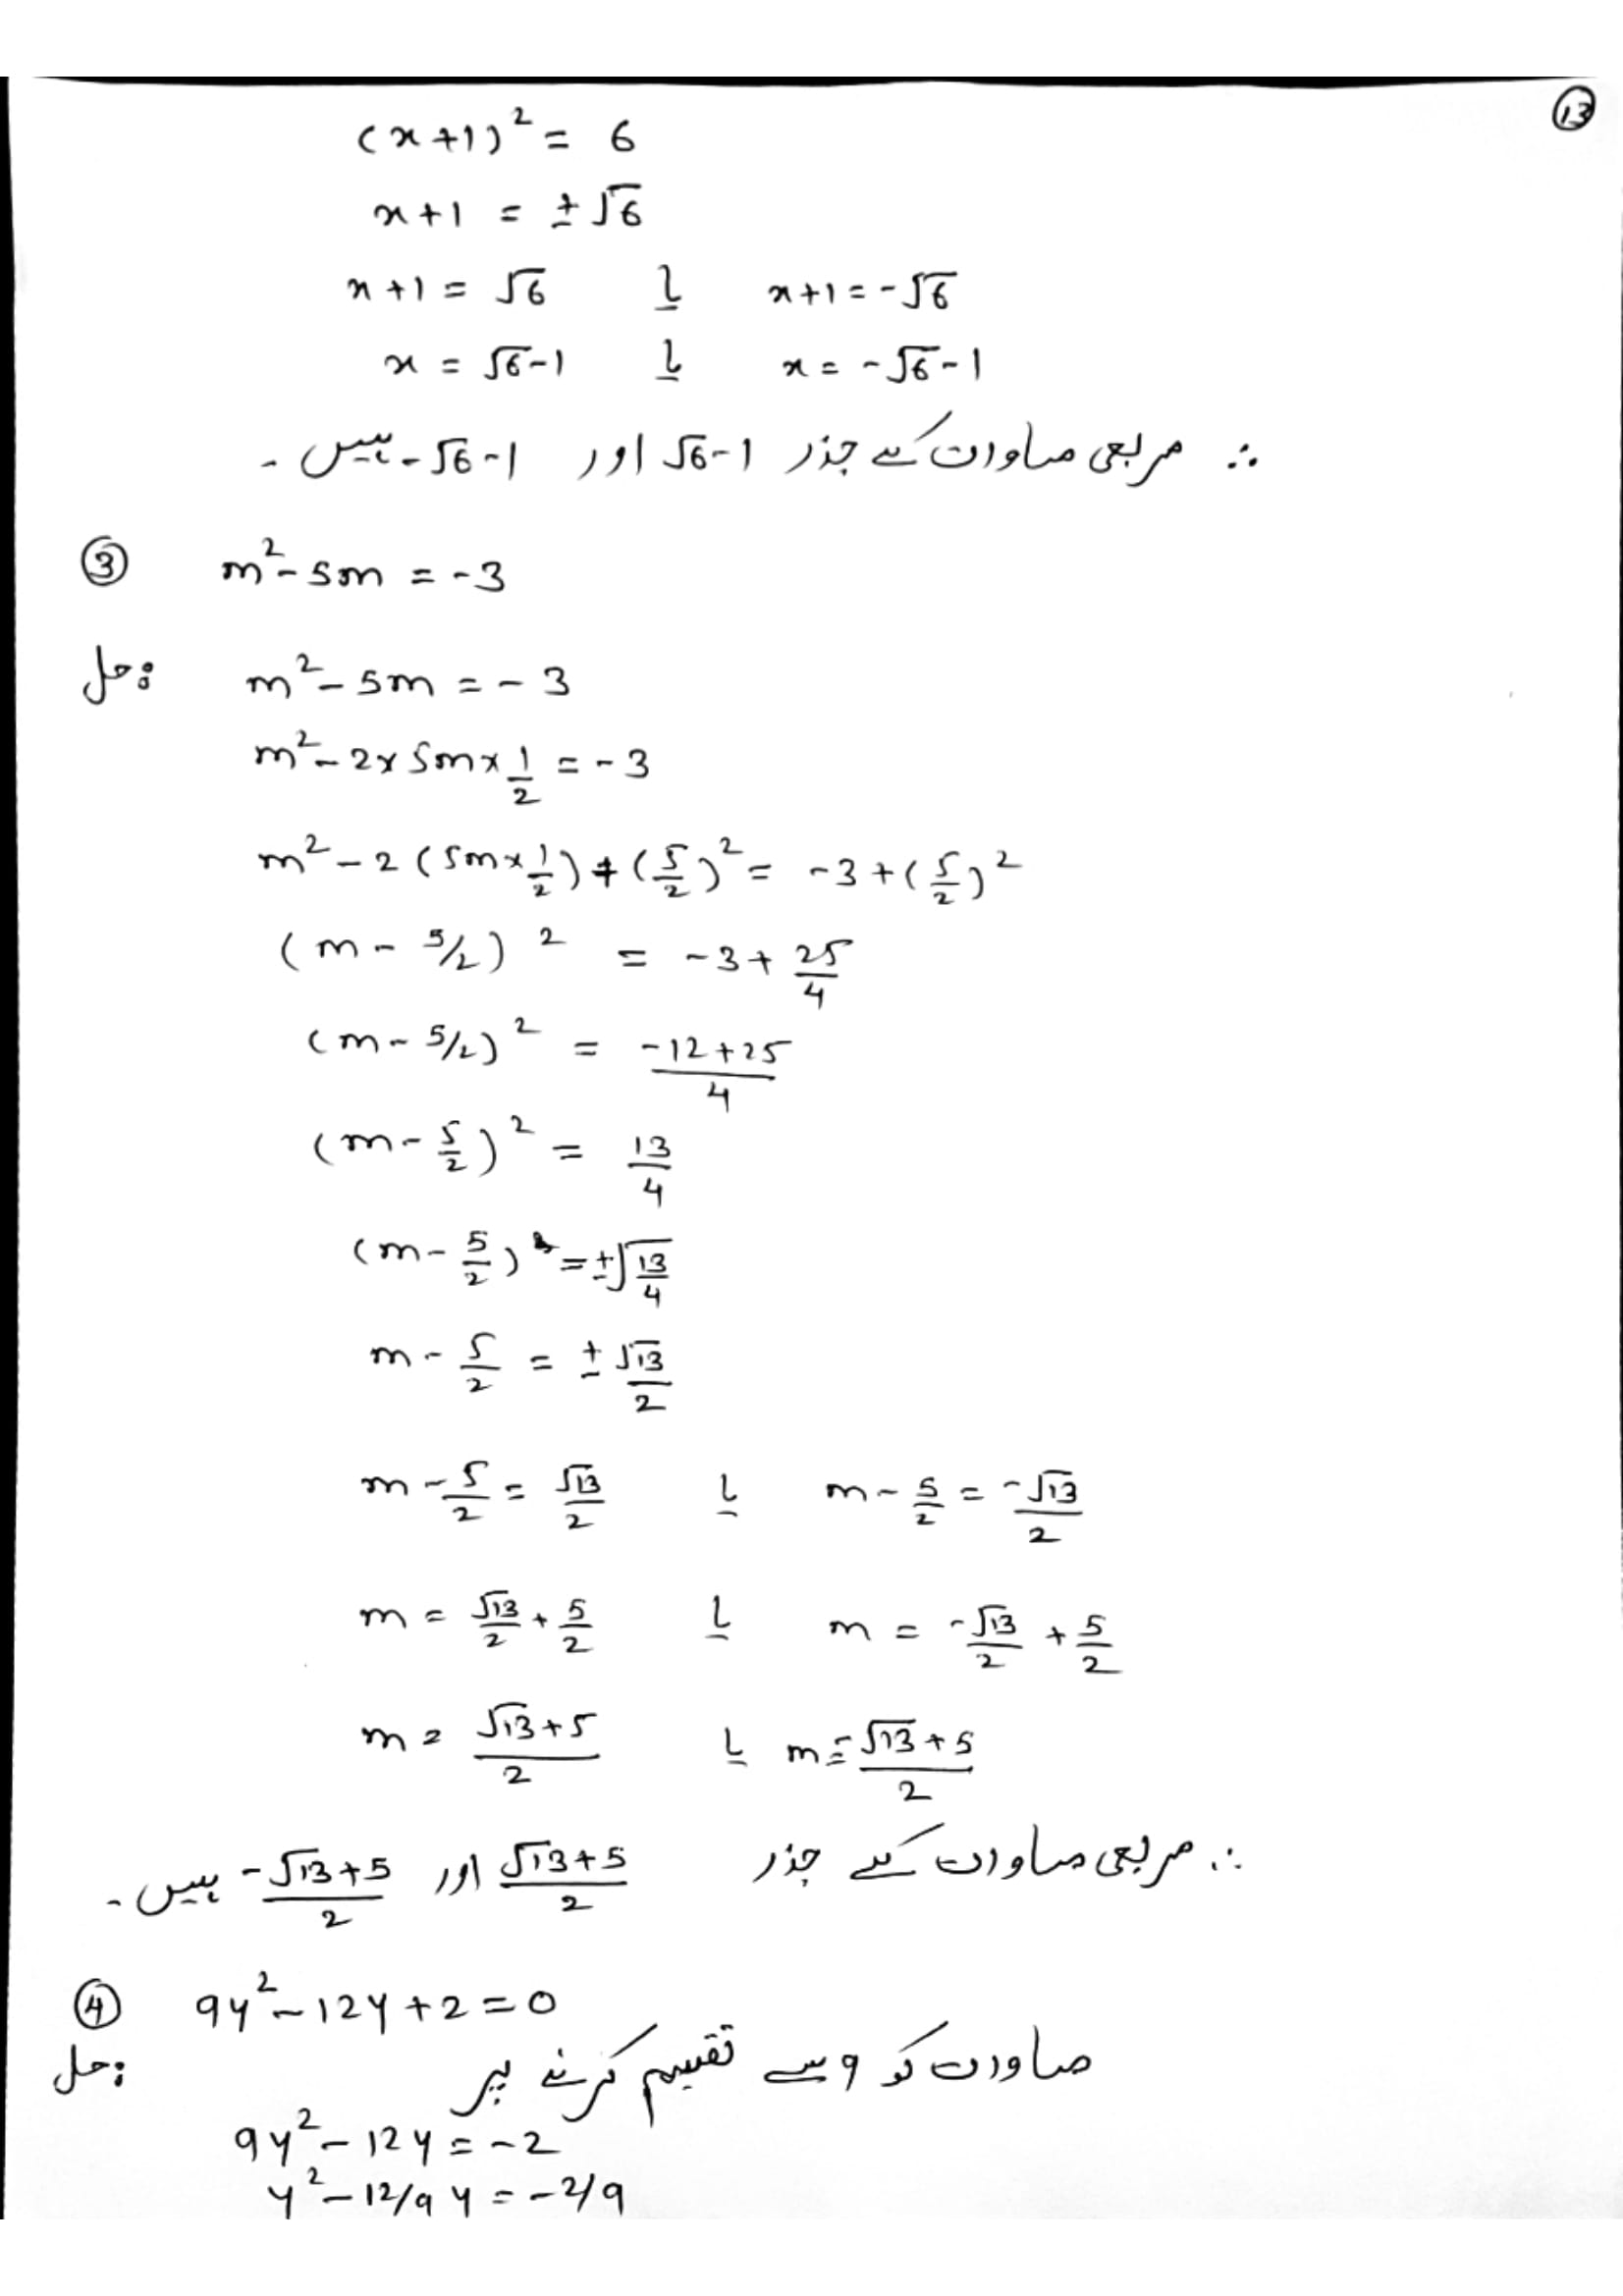 13
(x+1)² = 6
x+1 = ±√6
x+1 = √6 یا x+1 = -√6
x = √6-1 یا x = -√6-1
∴ مربعی مساوات کے جذر √6-1 اور -√6-1 ہیں۔
③ m²-5m = -3
حل: m²-5m = -3
m²-2×5m×1/2 = -3
m²-2(5m×1/2)+(5/2)² = -3+(5/2)²
(m-5/2)² = -3+25/4
(m-5/2)² = (-12+25)/4
(m-5/2)² = 13/4
(m-5/2) = ±√(13/4)
m-5/2 = ±√13/2
m-5/2 = √13/2 یا m-5/2 = -√13/2
m = √13/2+5/2 یا m = -√13/2+5/2
m = (√13+5)/2 یا m = (-√13+5)/2
∴ مربعی مساوات کے جذر (√13+5)/2 اور (-√13+5)/2 ہیں۔
④ 9y²-12y+2=0
حل: مساوات کو 9 سے تقسیم کرنے پر
9y²-12y = -2
y²-12/9 y = -2/9